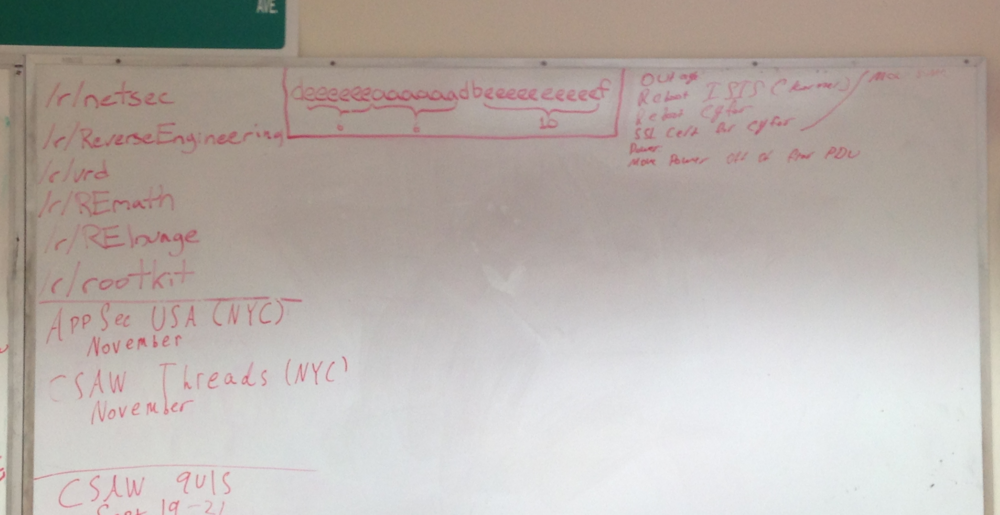 AVE.
/r/netsec
/r/ReverseEngineering
/r/vrd
/r/REmath
/r/RElounge
/r/rootkit
AppSec USA (NYC)
November
CSAW Threads (NYC)
November
CSAW quls
Sept 19-21
deeeeeeaaaaaadbeeeeeeeeeef
6 6 10
Outage
Reboot ISIS
Reboot Cyfor
SSL Cert for Cyfor
Power
Move Power Off of PDU